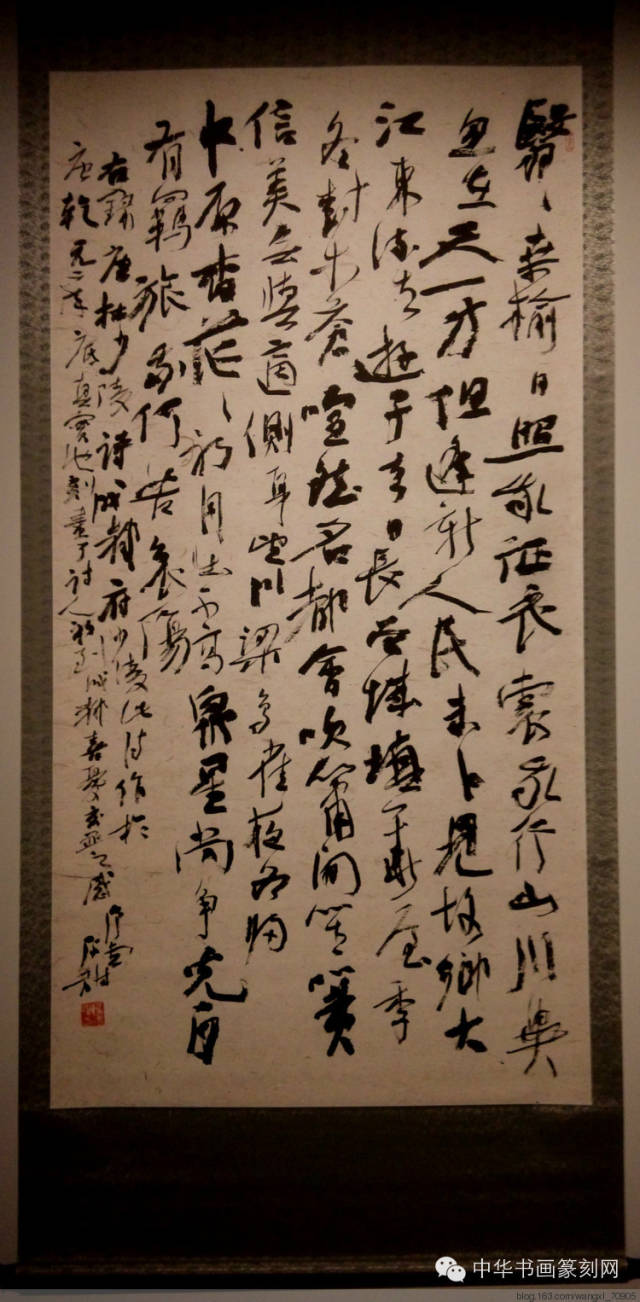 翳〻桑榆日照我征衣裳我行山川異
忽在天一方但逢新人民未卜見故鄉大
江東流去遊子去日長曾城填華屋季
冬樹木蒼喧然名都會吹簫間笙簧
信美無與適側身望川梁鳥雀夜各歸
中原杳茫〻初月出不高衆星尚爭光自
有羈旅我何苦哀傷
右録唐杜少陵詩成都府少陵此詩作於
唐乾元二年底真實地刻畫了詩人初到成都喜憂交並之感
中华书画篆刻网
blog.163.com/wangxl_70905